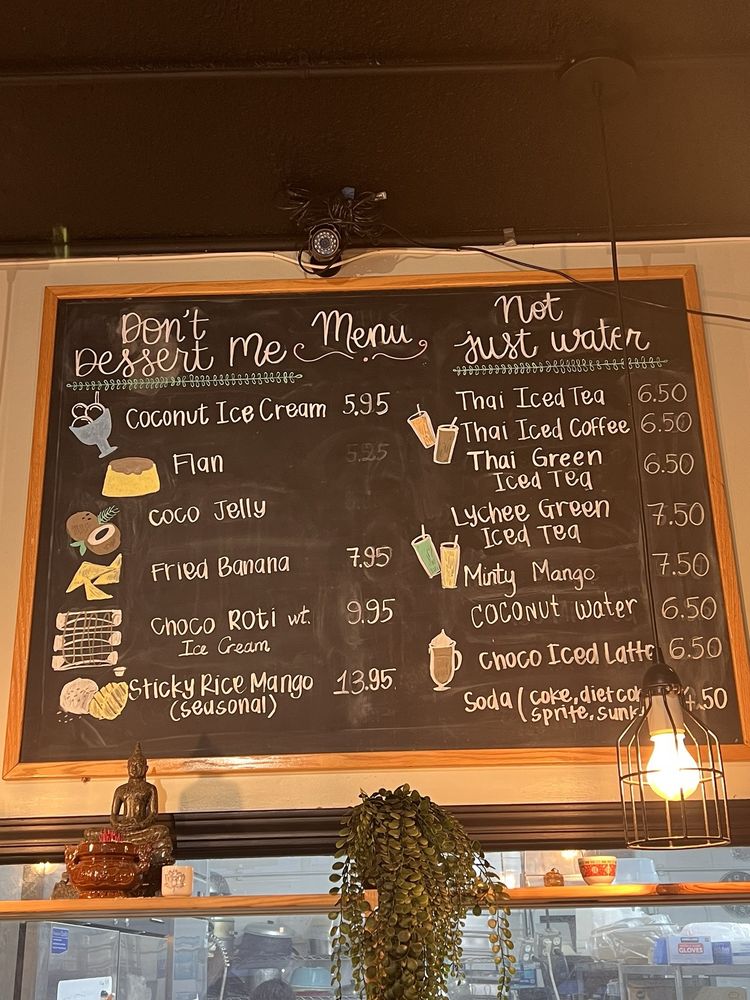 Don't
Dessert Me
Menu
Coconut Ice Cream 5.95
Flan 5.25
Coco Jelly
Fried Banana 7.95
Choco Roti wt. 9.95
Ice Cream
Sticky Rice Mango 13.95
(seasonal)
Not
just water
Thai Iced Tea 6.50
Thai Iced Coffee 6.50
Thai Green 6.50
Iced Tea
Lychee Green 7.50
Iced Tea
Minty Mango 7.50
Coconut water 6.50
Choco Iced Latte 6.50
Soda (coke, diet .50
sprite,
GLOVES